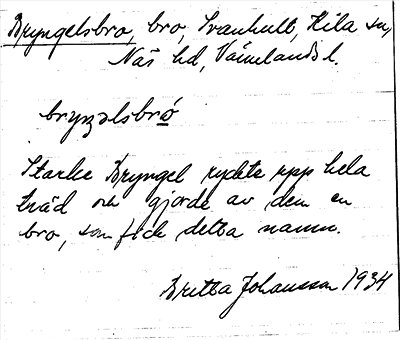 Bryngelsbro, bro, Svanhult, Kila sn,
Näs hd, Värmlands l.
bryŋəlsbrö
Starke Bryngel ryckte upp hela
träd och gjorde av dem en
bro, som fick detta namn.
Britta Johansson 1934